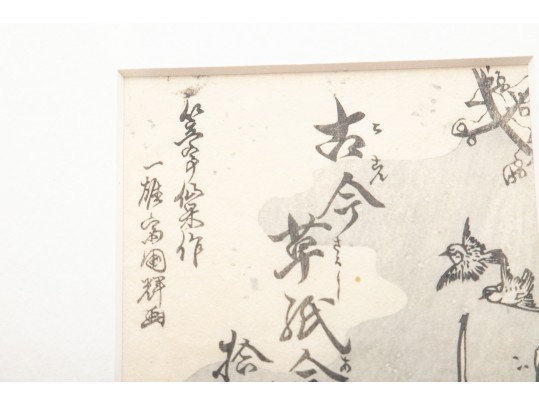 古今草紙合
拾
笠亭仙果作
一雄斎国輝画